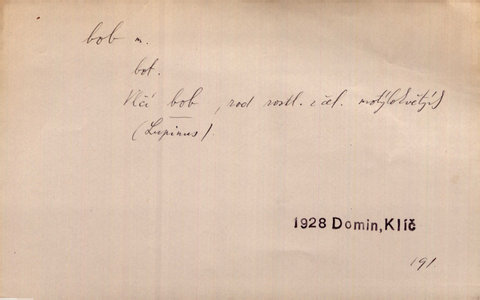 bob m.
bot.
Vlčí bob, rod rostl. z čel. motýlokvětých
(Lupinus).
1928 Domin, Klíč
191.